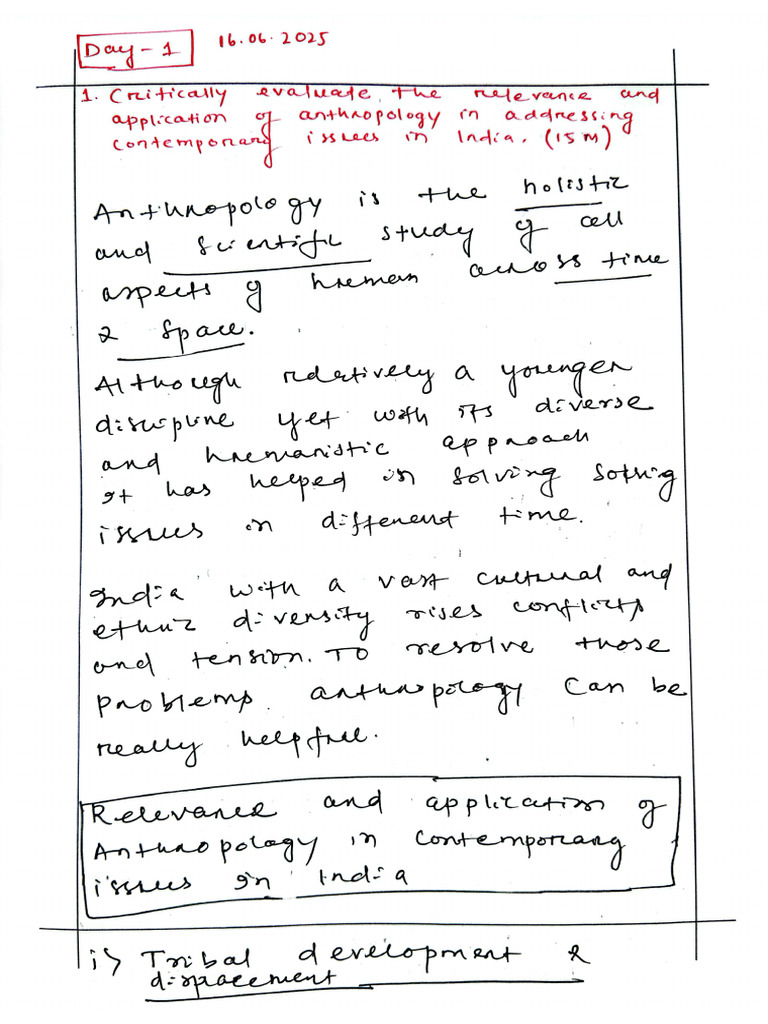 Day-1 16.06.2025
1. Critically evaluate, the relevance and
application of anthropology in addressing
contemporary issues in India. (15M)
Anthropology is the holistic
and scientific study of all
aspects of human across time
& space.
Although relatively a younger
discipline yet with its diverse
and humanistic approach
it has helped in solving solving
issues in different time.
India with a vast cultural and
ethnic diversity rises conflicts
and tension. To resolve those
problems anthropology can be
really helpful.
Relevance and application of
Anthropology in contemporary
issues in India
i) Tribal development &
displacement